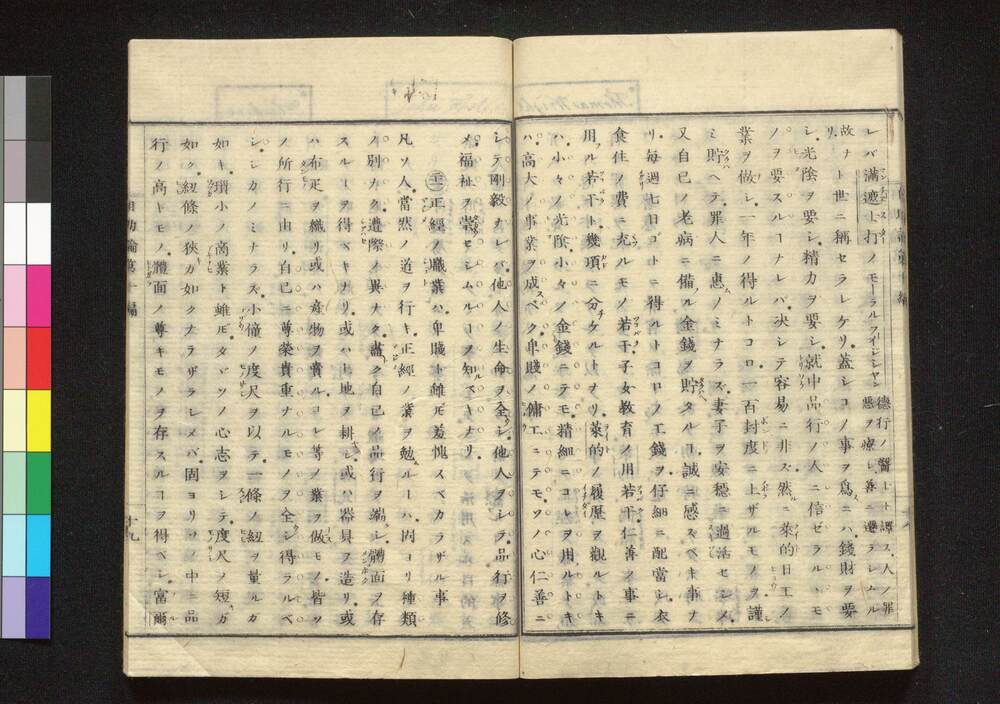 レバ滿遮士打ノモーラルフィジシヤン德行ノ醫ト譯ス、人ノ罪惡ヲ療シ善ニ遷ラシムル
故ナリト世ニ稱セラレケリ蓋シコノ事ヲ爲スニハ錢財ヲ要
シ光陰ヲ要シ精力ヲ要シ就中品行ノ人ニ信ゼラルヽモ
ノヲ要スルヿナレバ决シテ容易ニ非ズ然ルニ萊的日工ノ
業ヲ做シ一年ノ得ルトコロ一百封度ニ上ザルモノヲ謹
ミ貯ヘテ罪人ニ惠ムノミナラズ妻子ヲ安穩ニ過活セシメ
又自己ノ老病ニ備ル金錢ヲ貯タルヿ誠ニ感ズベキ事ナ
リ毎週七日ゴトニ得ルトコロノ工錢ヲ仔細ニ配當シ衣
食住ノ費ニ充ルモノ若干子女敎育ノ用若干仁善ノ事ニ
用フル若干ト幾項ニ分チケルトゾ萊的ノ履歷ヲ觀ルトキ
ハ小々ノ光陰小々ノ金錢ニテモ精細ニコレヲ用ルトキ
ハ高大ノ事業ヲ成スベク卑賤ノ傭工ニテモソノ心仁善ニ
シテ剛毅ナレバ他人ノ生命ヲ全シ他人ヲシテ品行ヲ修
メ福祉ヲ崇セシムルヿヲ知ベキナリ
正經ノ職業ハ卑賤ト雖𪜈羞愧スベカラザル事
凡ソ人當然ノ道ヲ行ヒ正經ノ業ヲ勉ルヿハ固ヨリ種類
ノ別ナク遭際ノ異ナク盡ク自己ノ品行ヲ端シ體面ヲ存
スルヿヲ得ベキナリ或ハ土地ヲ耕シ或ハ器具ヲ造リ或
ハ布疋ヲ織リ或ハ產物ヲ賣ルコレ等ノ業ヲ做モノ皆ソ
ノ所行ニ由リ自己ニ尊榮貴重ナルモノヲ全シ得ラルベ
シシカノミナラズ小僮ノ度尺ヲ以テ一條ノ紐ヲ量ルガ
如キ瑣小ノ商業ト雖𪜈タヾソノ心志ヲシテ度尺ノ短ガ
如ク紐條ノ狹ガ如クナラザラシメバ固ヨリソノ中ニ品
行ノ高キモノ體面ノ尊キモノヲ存スルヿヲ得ベシ富爾
自助論第十編
十九